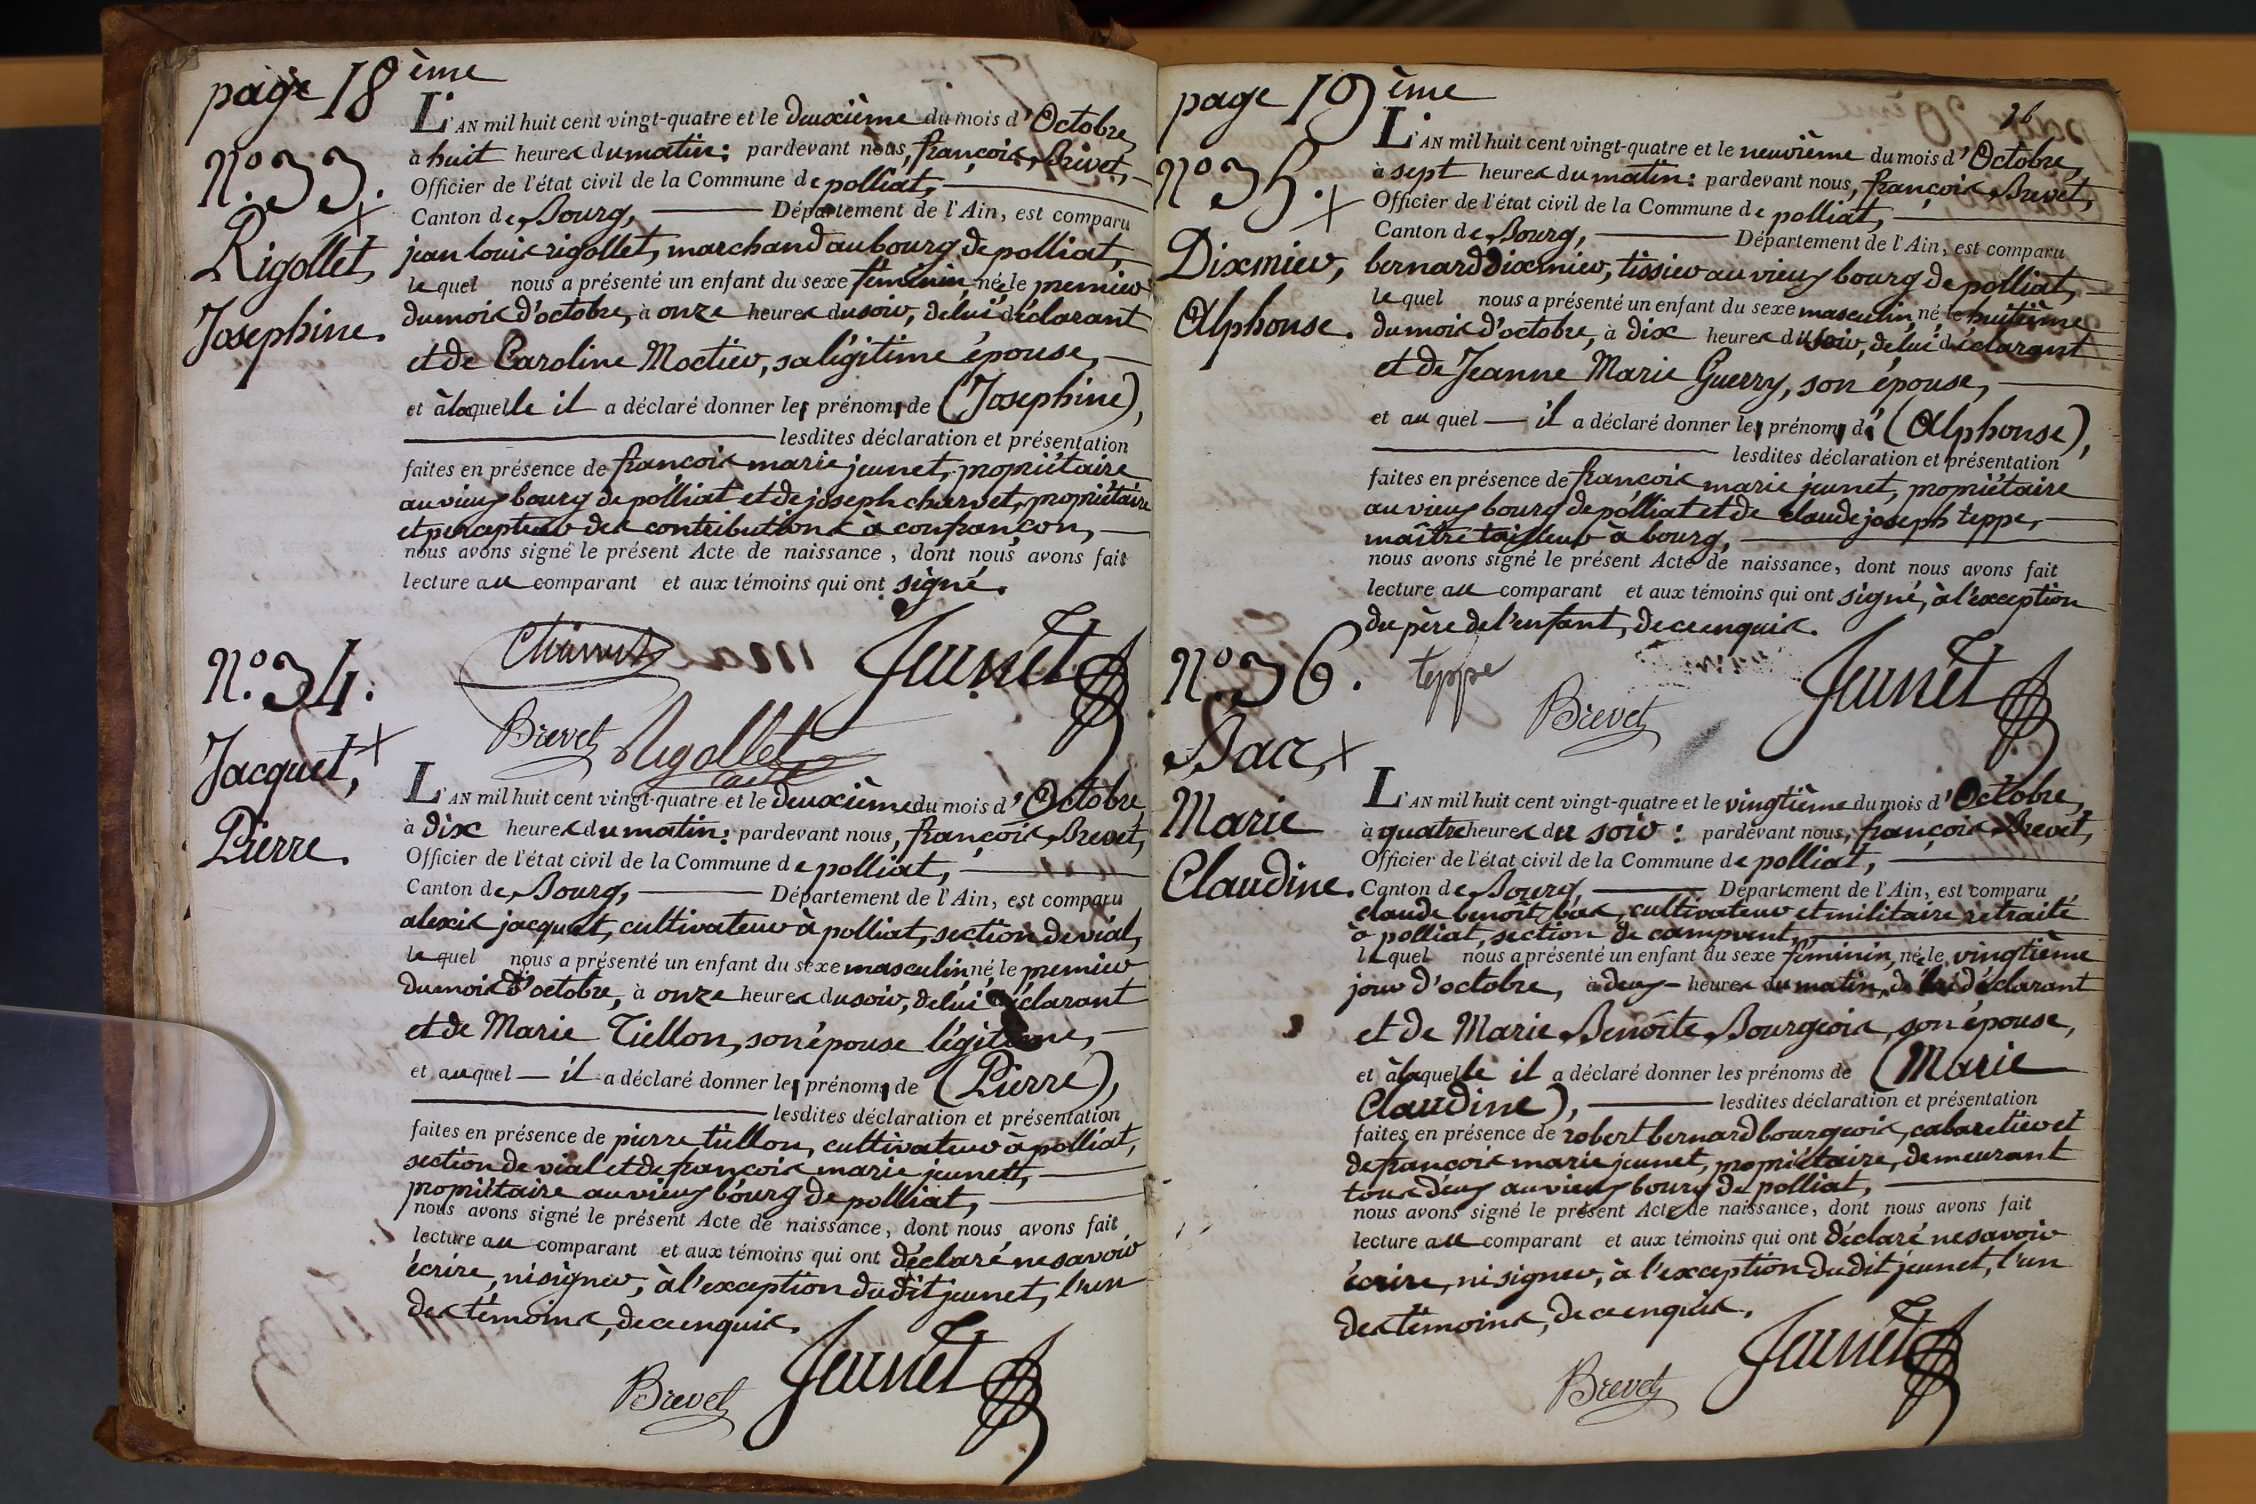 page 18ème
N.o 33.
Rigollet,
Josephine.
L'AN mil huit cent vingt-quatre et le deuxième du mois d'Octobre,
à huit heures du matin: pardevant nous, françois Brevet,
Officier de l'état civil de la Commune de polliat,
Canton de Bourg, Département de l'Ain, est comparu
jean louis rigollet, marchand au bourg de polliat,
lequel nous a présenté un enfant du sexe féminin, né le premier
du mois d'octobre, à onze heures du soir, de lui déclarant
et de Caroline Moctier, sa légitime épouse,
et à laquelle il a déclaré donner le prénom de (Josephine),
lesdites déclaration et présentation
faites en présence de françois marie jeunet, propriétaire
au vieux bourg de polliat et de joseph charvet, propriétaire
et percepteur des contributions à confrançon,
nous avons signé le présent Acte de naissance, dont nous avons fait
lecture au comparant et aux témoins qui ont signé.
Jeunet
Brevet Rigollet
N.o 34.
Jacquet,
Pierre.
L'AN mil huit cent vingt-quatre et le deuxième du mois d'Octobre,
à dix heures du matin: pardevant nous, françois Brevet,
Officier de l'état civil de la Commune de polliat,
Canton de Bourg, Département de l'Ain, est comparu
alexis jacquet, cultivateur à polliat, section de vial,
lequel nous a présenté un enfant du sexe masculin, né le premier
du mois d'octobre, à onze heures du soir, de lui déclarant
et de Marie Tiellon, son épouse légitime,
et auquel il a déclaré donner le prénom de (Pierre),
lesdites déclaration et présentation
faites en présence de pierre tiellon, cultivateur à polliat,
section de vial et de françois marie jeunet,
propriétaire au vieux bourg de polliat,
nous avons signé le présent Acte de naissance, dont nous avons fait
lecture au comparant et aux témoins qui ont déclaré ne savoir
écrire, ni signer, à l'exception du dit jeunet, l'un
des témoins, de ce enquis.
Brevet Jeunet
page 19ème
N.o 35.
Dixmier,
Alphonse.
L'AN mil huit cent vingt-quatre et le neuvième du mois d'Octobre,
à sept heures du matin: pardevant nous, françois Brevet,
Officier de l'état civil de la Commune de polliat,
Canton de Bourg, Département de l'Ain, est comparu
bernard dixmier, tissier au vieux bourg de polliat,
lequel nous a présenté un enfant du sexe masculin, né le huitième
du mois d'octobre, à dix heures du soir, de lui déclarant
et de Jeanne Marie Guerry, son épouse,
et auquel il a déclaré donner le prénom d' (Alphonse),
lesdites déclaration et présentation
faites en présence de françois marie jeunet, propriétaire
au vieux bourg de polliat et de claude joseph teppe,
maître tailleur à bourg,
nous avons signé le présent Acte de naissance, dont nous avons fait
lecture au comparant et aux témoins qui ont signé, à l'exception
du père de l'enfant, de ce enquis.
teppe Brevet Jeunet
N.o 36.
Bac,
Marie
Claudine.
L'AN mil huit cent vingt-quatre et le vingtième du mois d'Octobre,
à quatre heures du soir: pardevant nous, françois Brevet,
Officier de l'état civil de la Commune de polliat,
Canton de Bourg, Département de l'Ain, est comparu
claude benoît bac, cultivateur et militaire retraité
à polliat, section de campvent,
lequel nous a présenté un enfant du sexe féminin, né le vingtième
jour d'octobre, à deux heures du matin, de lui déclarant
et de Marie Benoîte Bourgeois, son épouse,
et à laquelle il a déclaré donner les prénoms de (Marie
Claudine), lesdites déclaration et présentation
faites en présence de robert bernard bourgeois, cabaretier et
de françois marie jeunet, propriétaire, demeurant
tous deux au vieux bourg de polliat,
nous avons signé le présent Acte de naissance, dont nous avons fait
lecture au comparant et aux témoins qui ont déclaré ne savoir
écrire, ni signer, à l'exception du dit jeunet, l'un
des témoins, de ce enquis.
Brevet Jeunet